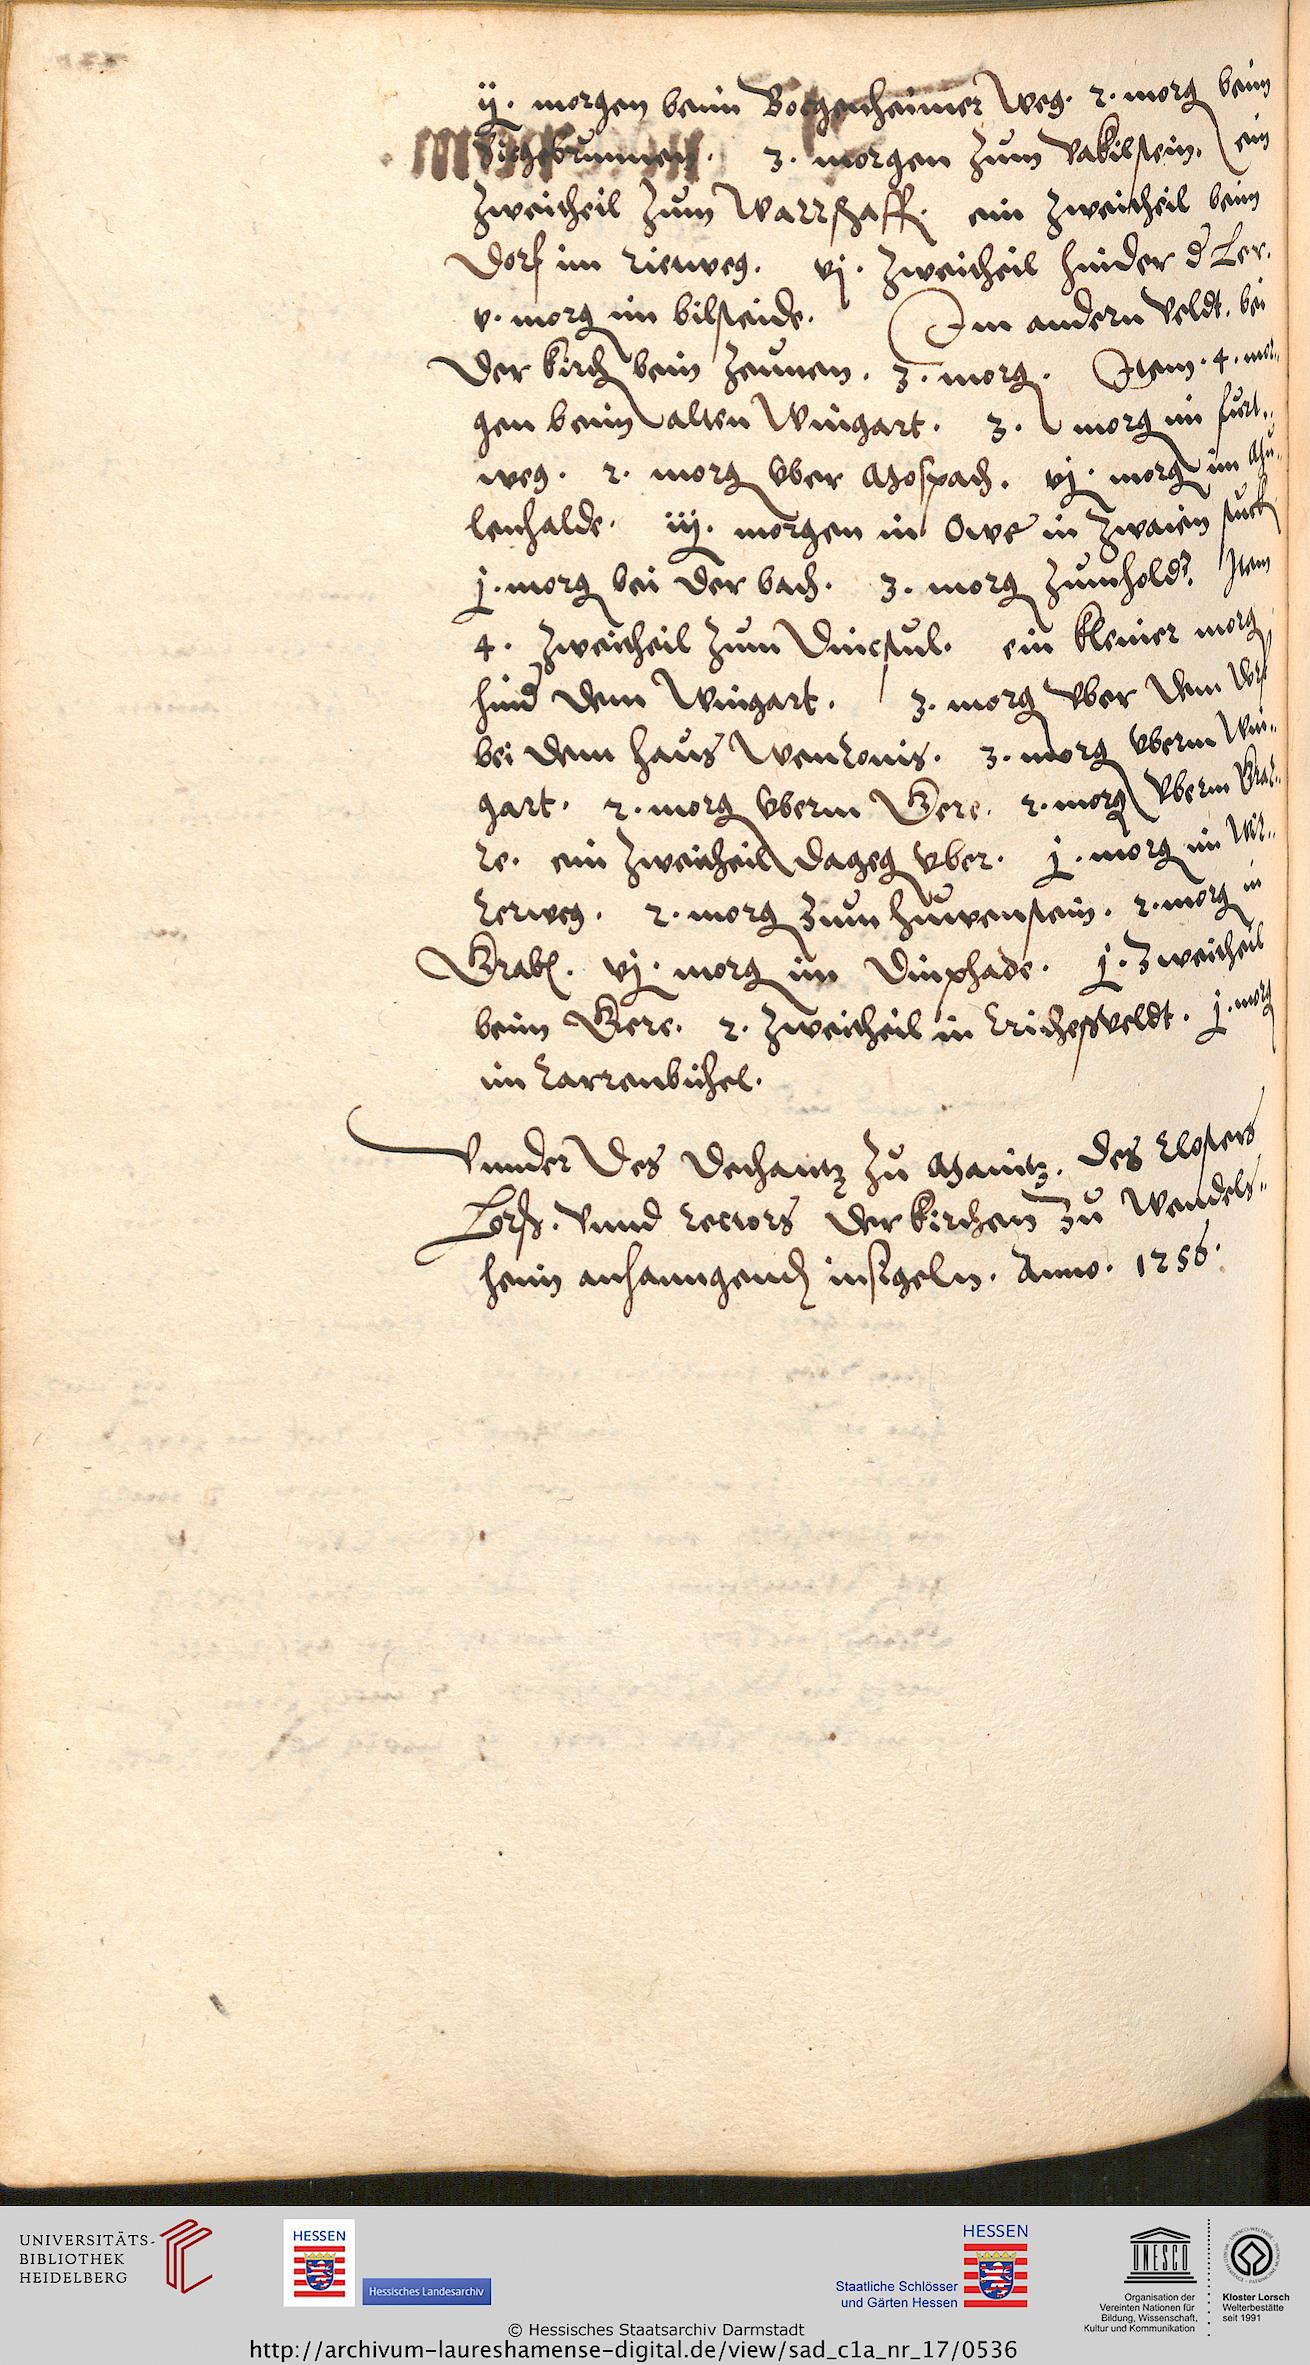 ij. morgen beim Bockenheimer Weg. 2. morg beim
3. morgen zum Vakilstein. ein
Zweitheil zum Warrshaff. ein Zweitheil beim
Dorf im rietweg. vj. Zweitheil hinder d Ler.
v. morg im bilsteide. Im andern Veldt. bei
der kirch beim Zeunen. 3. morg. Item. 4. mor„
gen beim alten Wingart. 3. morg im furt„
weg. 2. morg vber Mospach. vj. morg im Mu„
lenhalde. iij. morgen in Owe in Zwaien stuck
j. morg bei der bach. 3. morg Item
4. Zweitheil zum Dincstul. ein kleiner morg
hind dem Wingart. 3. morg vber dem Dorf
bei dem haus Wentzonis. 3. morg vberm Win„
gart. 2. morg vberm Gere. 2. morg vberm
ein Zweitheil dageg vber. j. morg im
2. morg zum huwenstein. 2. morg in
Grab. vj. morg im Dinphade. j. Zweitheil
beim Gere. 2. Zweitheil in j. morg
im karrenbuhel.
Vnnder des Dechantz zu Maintz. des Closters
Lorsh. Vnnd rectors der kirchen zu Wendels„
heim anhanngend insigeln. Anno. 1256.
UNIVERSITÄTS-
BIBLIOTHEK
HEIDELBERG
HESSEN
Hessisches Landesarchiv
HESSEN
Staatliche Schlösser
und Gärten Hessen
UNESCO
Organisation der
Vereinten Nationen für
Bildung, Wissenschaft,
Kultur und Kommunikation
Kloster Lorsch
Welterbestätte
seit 1991
© Hessisches Staatsarchiv Darmstadt
http://archivum-laureshamense-digital.de/view/sad_c1a_nr_17/0536